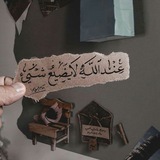 عند الله لا يضيع شيء